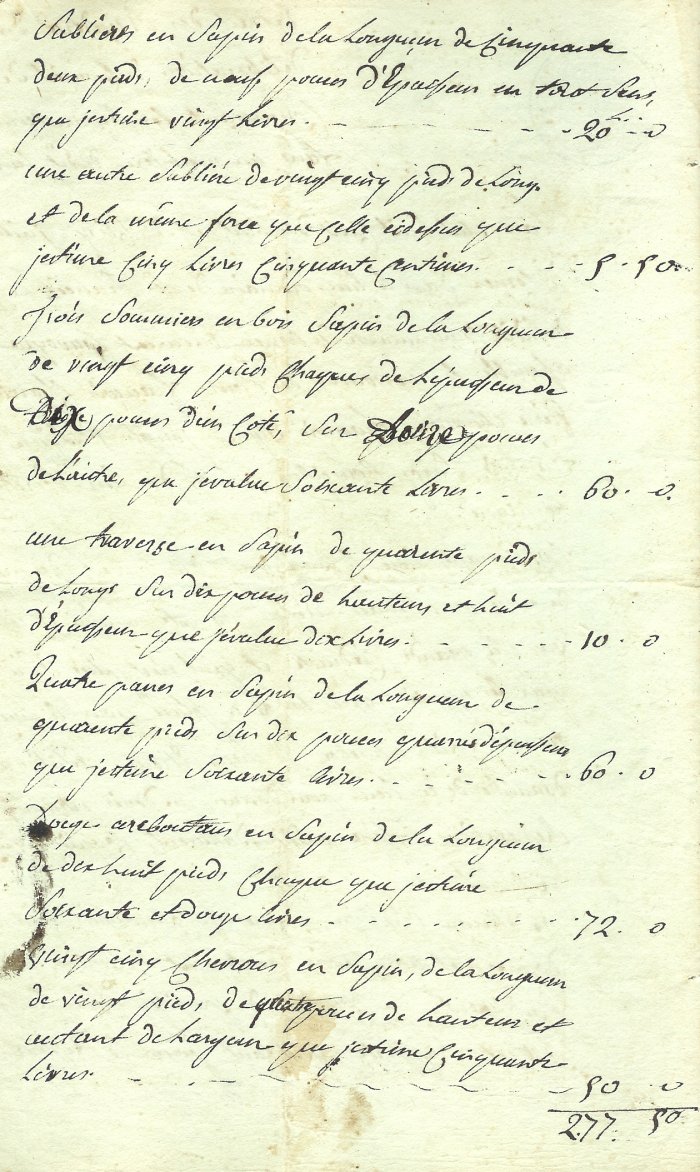 Sablieres en Sapin de la Longueur de Cinquante
deux pieds, de neuf pouces d'Epaisseur en tout Sens,
que j'estime vingt Livres. 20 L. 0
une autre Sabliére de vingt cinq pieds de Long
et de la même force que Celle cidessus que
j'estime Cinq Livres Cinquante Centimes. 5. 50.
Trois Sommiers en bois Sapin de la Longueur
de vingt cinq pieds Chaques de L'épaisseur de
Dix pouces d'un Coté, Sur Douze pouces
de L'autre, que j'évalue Soixante Livres. 60. 0.
une traverse en Sapin de quarente pieds
de Longs Sur dix pouces de hauteur et huit
d'Épaisseur que j'évalue dix Livres. 10. 0
Quatre panes en Sapin de la Longueur de
quarente pieds Sur dix pouces quarrés d'épaisseur
que j'estime Soixante Livres. 60. 0
Douze arcboutans en Sapin de la Longueur
de dix huit pieds Chaque que j'estime
Soixante et douze Livres. 72. 0
Vingt cinq Chevrons en Sapin, de la Longueur
de vingt pieds de quatre pouces de hauteur et
autant de Largeur que j'estime Cinquante
Livres. 50 0
277. 50